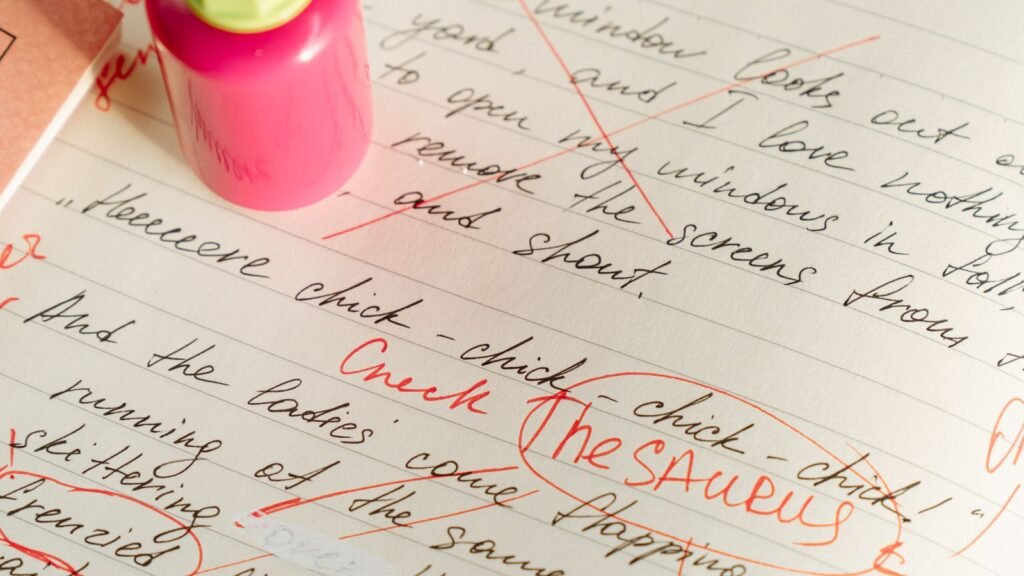 window looks out o
yard, and I love nothing
to open my windows in fall,
remove the screens from t
and shout.
„Heeeeere chick - chick - chick - chick! "
Check TheSAURUS
And the ladies' come flapping
running at the same
skittering
over
frenzied